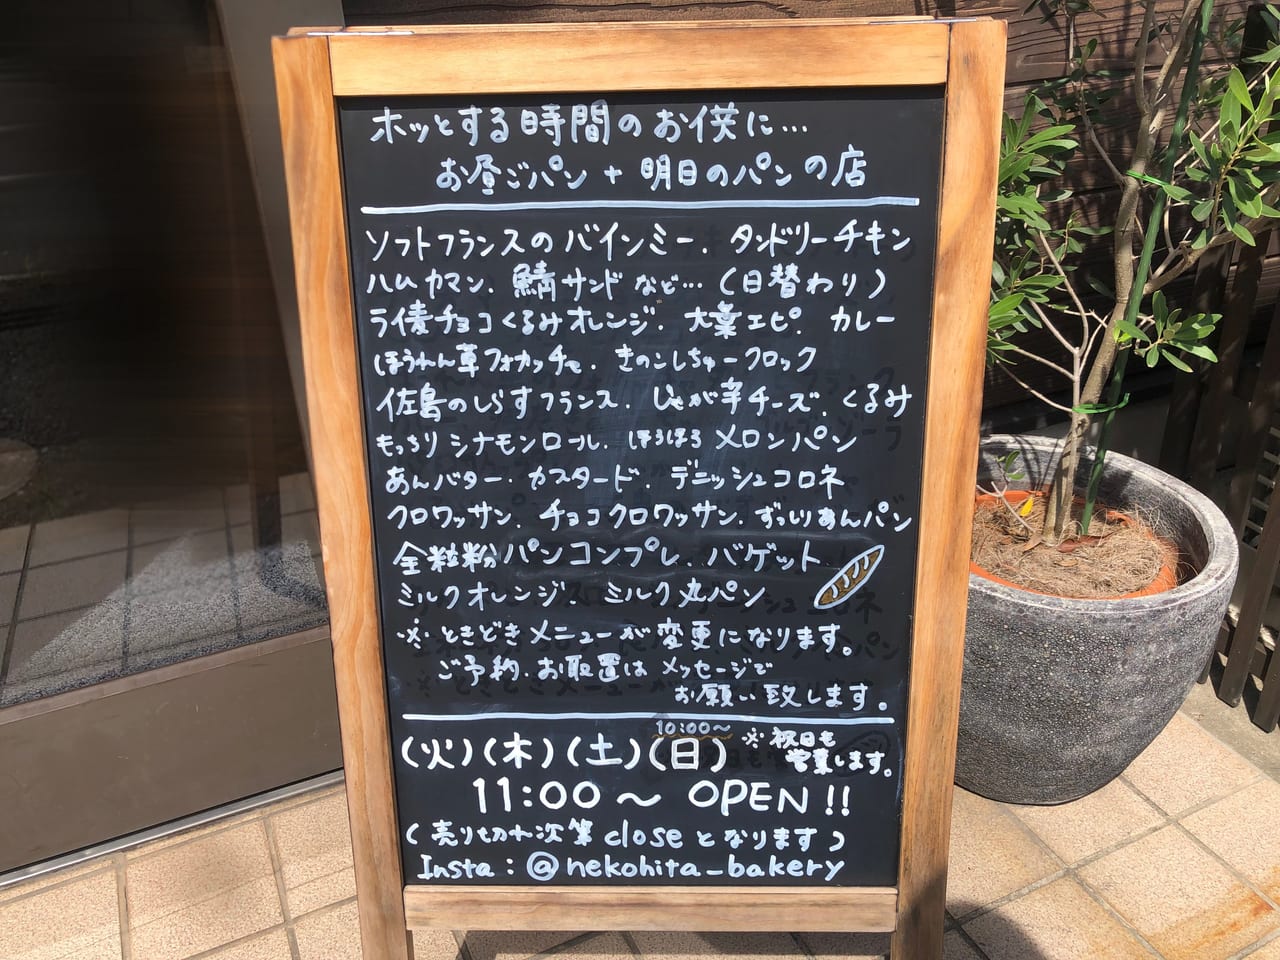 ホッとする時間のお供に…
お昼ごパン + 明日のパンの店
ソフトフランスのバインミー. タンドリーチキン
ハムカマン. 鯖サンドなど…(日替わり)
ライ麦チョコくるみオレンジ. 大葉エピ. カレー
ほうれん草フォカッチャ. きのこしちゅークロック
佐島のしらすフランス. じゃが辛チーズ. くるみ
もっちりシナモンロール. ほろほろメロンパン
あんバター. カスタード. デニッシュコロネ
クロワッサン. チョコクロワッサン. ずっしりあんパン
全粒粉パンコンプレ. バゲット
ミルクオレンジ. ミルク丸パン
※ときどきメニューが変更になります。
ご予約.お取置はメッセージで
お願い致します。
10:00〜
(火)(木)(土)(日) ※祝日も営業します。
11:00〜 OPEN!!
(売り切れ次第closeとなります)
Insta:@nekohita_bakery